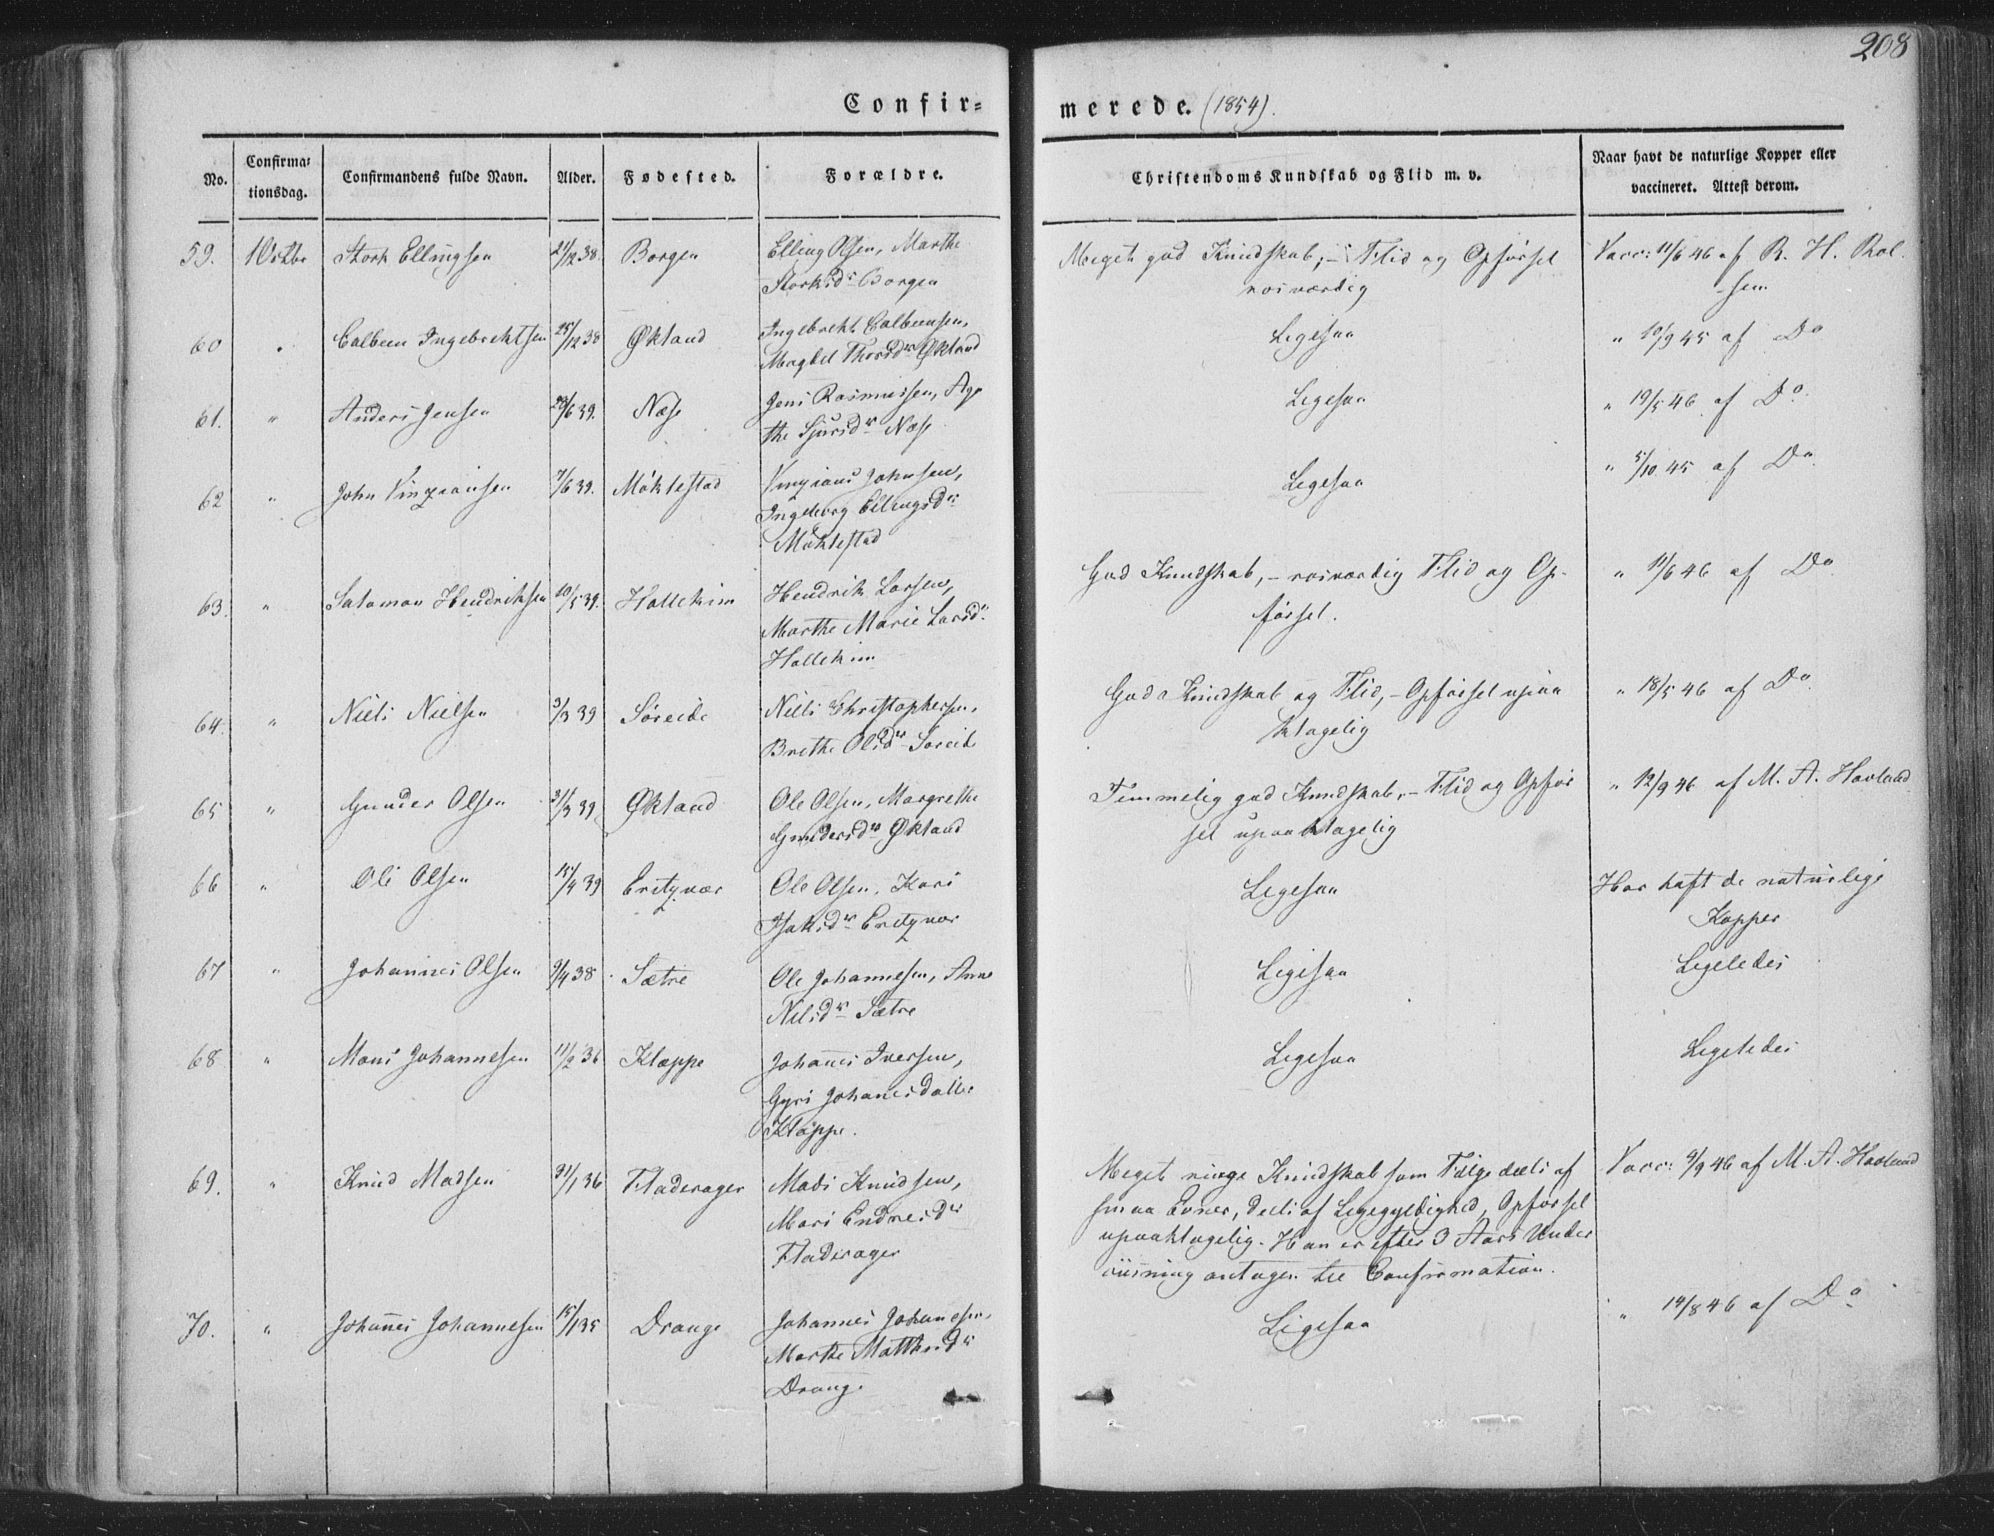 208
Confir-
merede. (1854).
No.
Confirma-
tionsdag.
Confirmandens fulde Navn.
Alder.
Fødested.
Forældre.
Christendoms Kundskab og Flid m. v.
Naar havt de naturlige Kopper eller
vaccineret. Attest derom.
59. 1 Octbr Stork Ellingsen 21/12 38. Borgen Elling Olsen, Marthe Meget god Kundskab, - Flid og Opførsel Vacc: 11/6 46 af R. H. Rol-
Storksdr Borgen rosværdig sen
60 " Colbeen Ingebrektsen 25/12 38 Øktand Ingebrekt Colbeensen, Ligesaa " 10/9 45 af Do
Magdel Thorsdr Øktand
61. " Anders Jensen 6 39. Næs Jens Rasmussen, Aga- Ligesaa " 19/5 46 af Do
the Sjursdr Næs
62 " John Vingiansen 7/6 39. Møklestad Vingians Johnsen, Ligesaa " 5/10 45 af Do
Ingeborg Ellingsdr
Møklestad
63. " Salamon Hendriksen 10/5 39. Hallekim Hendrik Larsen, God Kundskab, - rosværdig Flid og Op- " 11/6 46 af Do
Marthe Marie Larsdr førsel.
Hallekim
64. " Niels Nielsen 3/3 39 Søreide Niels Christophersen, God Kundskab og Flid, - Opførsel upaa " 18/5 46 af Do
Brethe Olsdr Søreide klagelig
65 " Gunder Olsen 31/3 39 Øktand Ole Olsen, Margrethe Temmelig god Kundskab, - Flid og Opfør " 12/9 46 af M. A. Havland
Gundersdr Øktand sel upaaklagelig
66 " Ole Olsen 15/4 39 Engevær Ole Olsen, Kari Ligesaa Har haft de naturlige
Isaksdr Kopper
67 " Johannes Olsen 9/4 38 Sætre Ole Johannesen, Anne Ligesaa Ligeledes
Nilsdr Sætre
68 " Mons Johannesen 11/2 36 Klæppe Johanes Iversen, Ligesaa Ligeledes
Gyri Johanesdatter
Klæppe.
69. " Knud Madsen 31/1 36 Fladerager Mads Knudsen, Meget ringe Kundskab som Følge deels af Vacc: 9/9 46 af M. A. Havland
Mari Endresdr smaa Evner, deels af Ligegyldighed, Opførsel
Fladerager upaaklagelig. Han er efter 3 Aars Under
viisning antagen til Confirmation.
70. " Johanes Johannesen 15/1 35 Drange Johannes Johannesen, Ligesaa " 14/8 46 af Do
Marthe Matthisdr
Drange